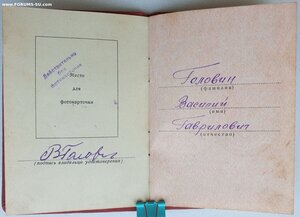 www.FORUMS-SU.com
Действительно
без
фотокарточки
Место
для
фотокарточки
ВГолов
(подпись владельца удостоверения)
Головин
(фамилия)
Василий
(имя)
Гаврилович
(отчество)